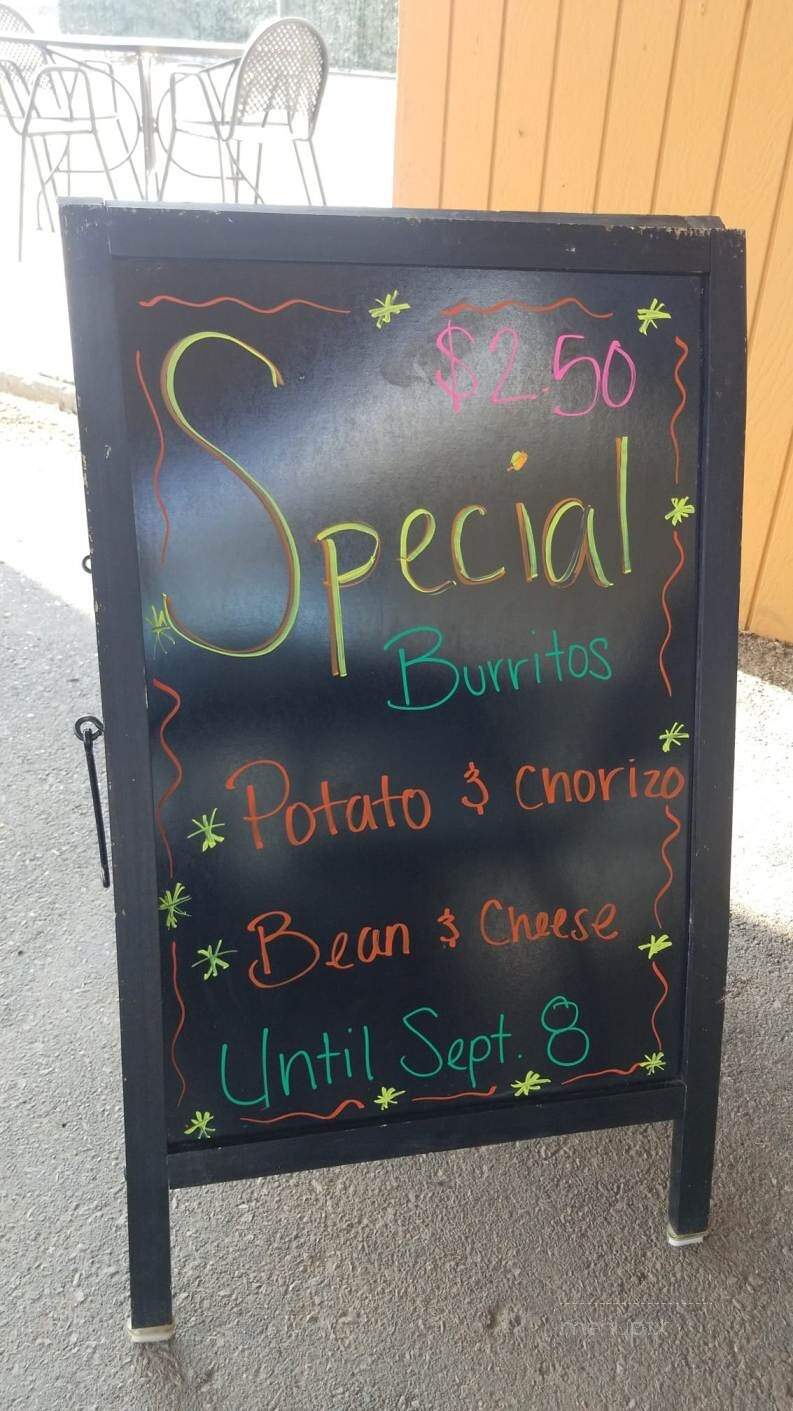 $2.50
Special
Burritos
Potato & Chorizo
Bean & Cheese
Until Sept. 8
menupix